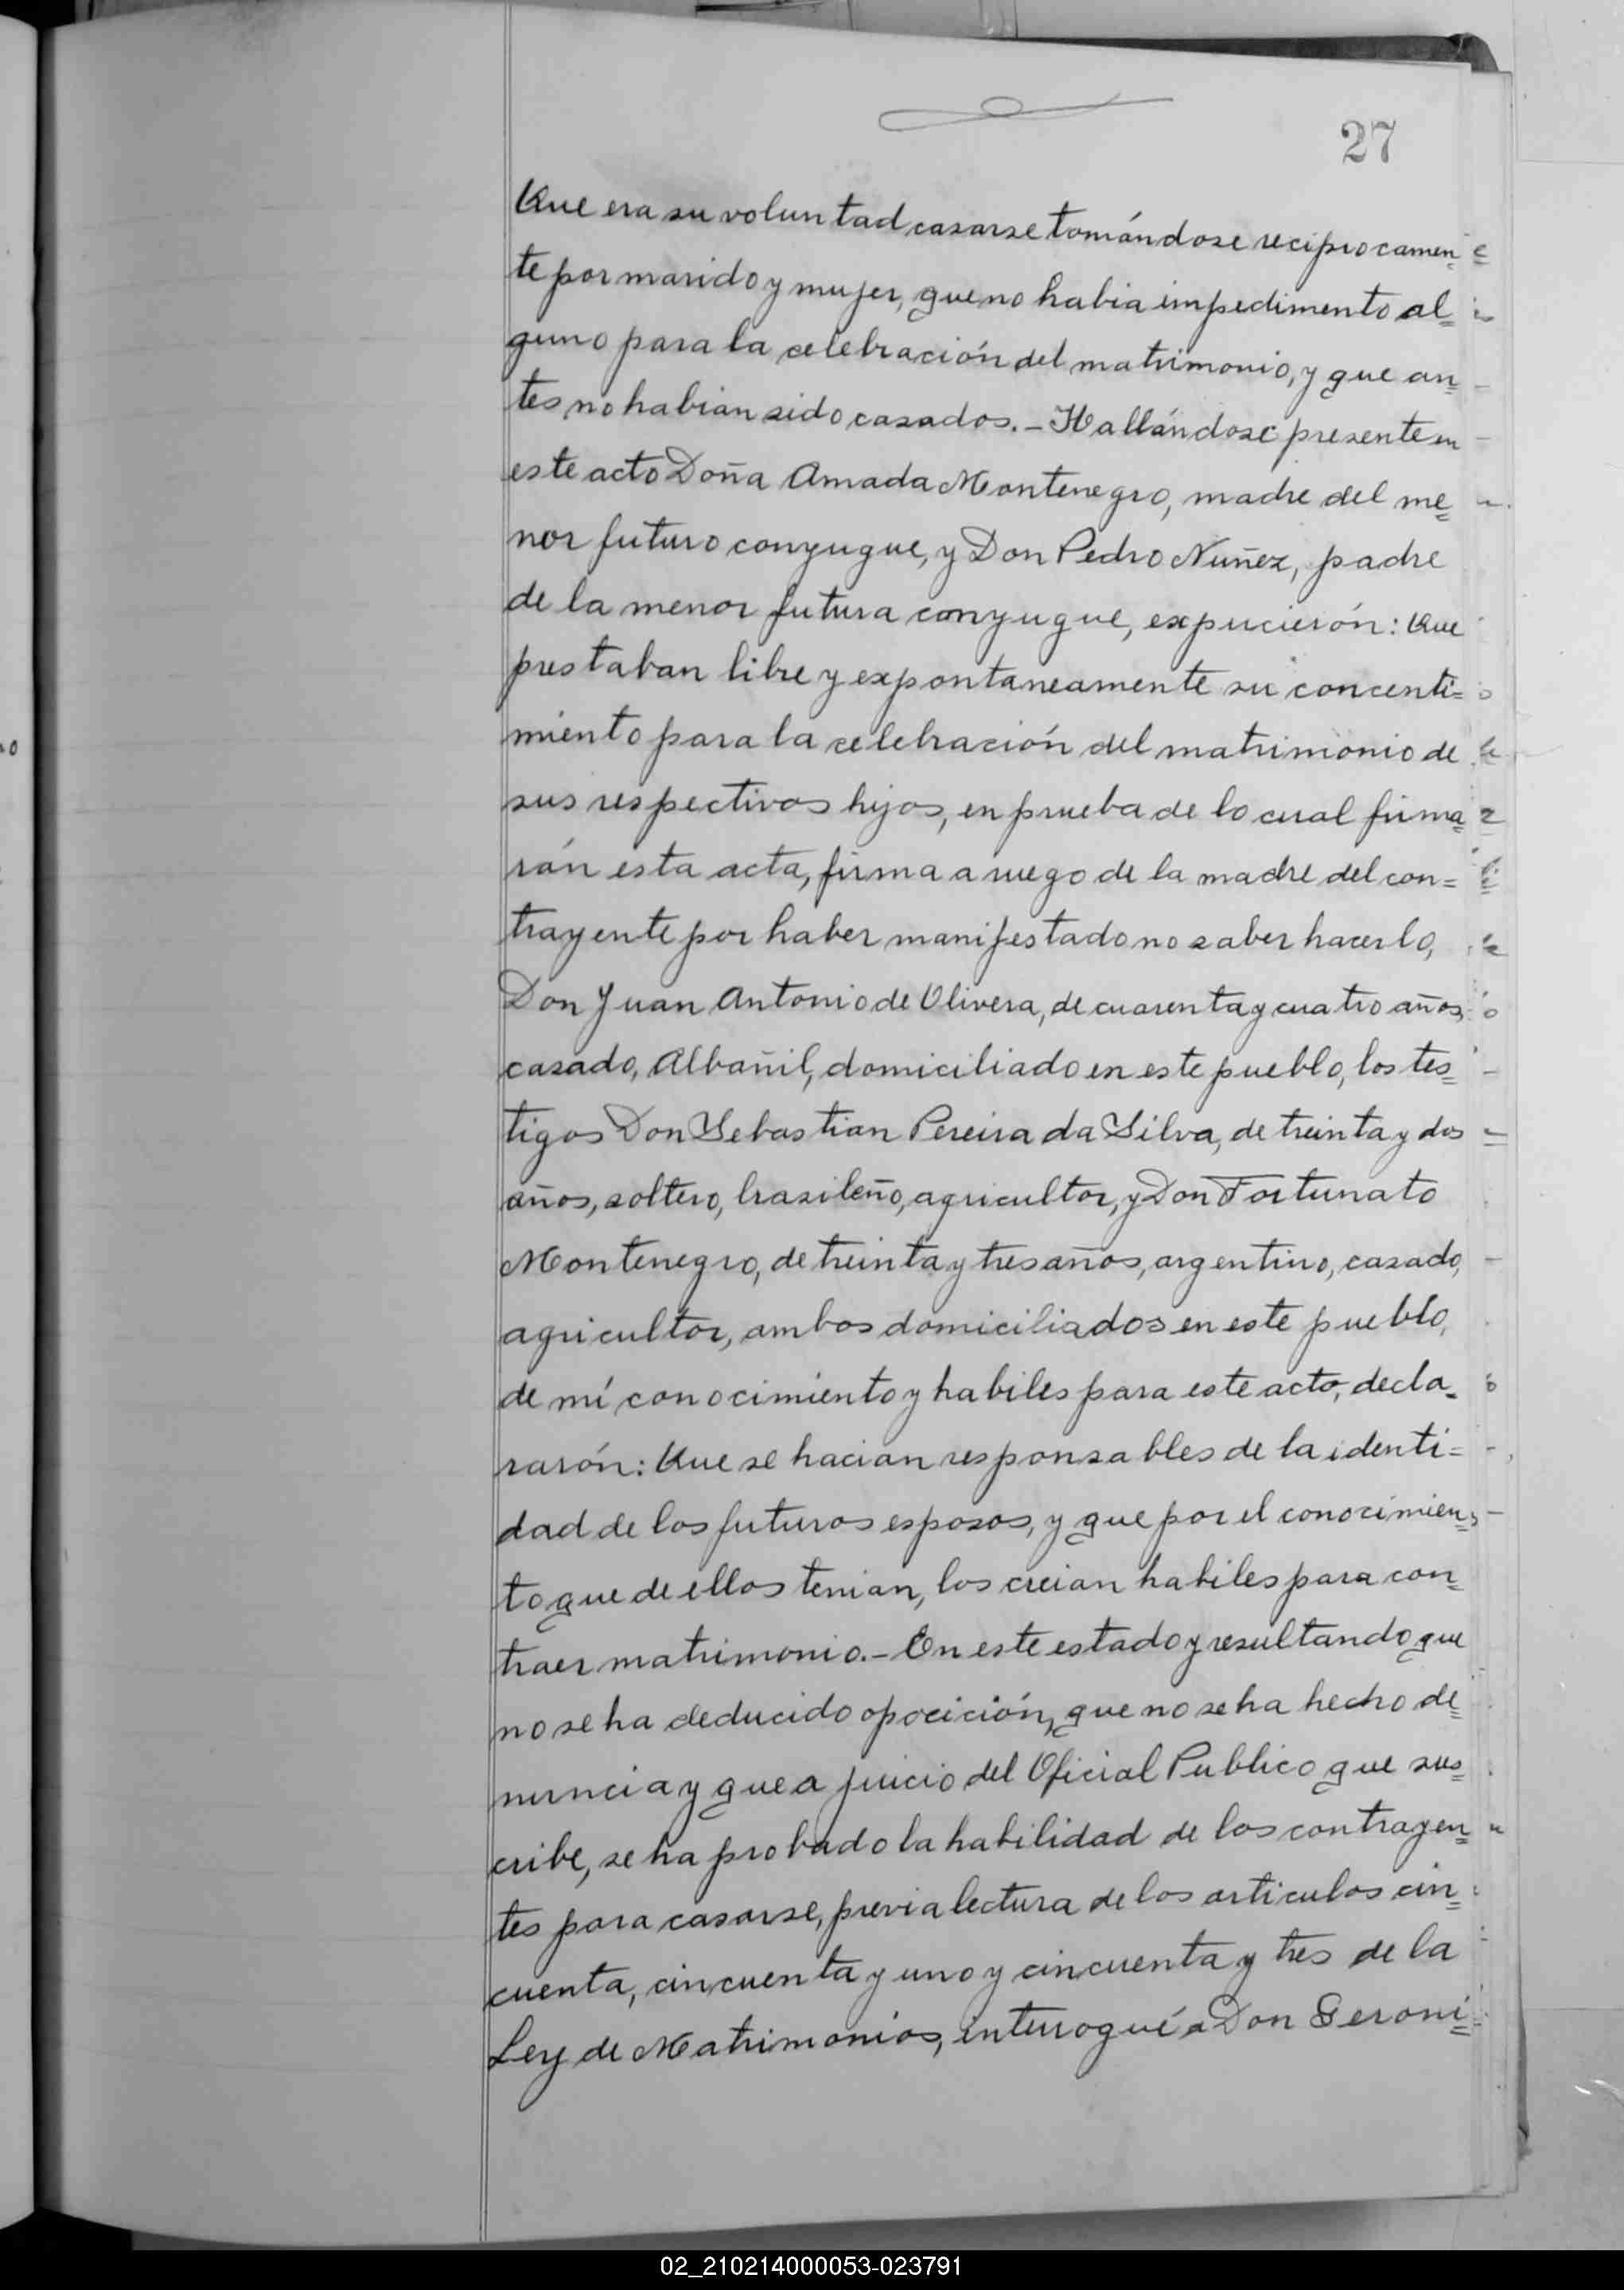 27
Que era su voluntad casarse tomándose reciprocamen=
te por marido y mujer, que no habia impedimento al=
guno para la celebración del matrimonio, y que an=
tes no habian sido casados.- Hallándose presente en
este acto Doña Amada Montenegro, madre del me=
nor futuro conyugue, y Don Pedro Nuñez, padre
de la menor futura conyugue, expucierón: Que
prestaban libre y expontaneamente su concenti=
miento para la celebración del matrimonio de
sus respectivos hijos, en prueba de lo cual firma=
rán esta acta, firma a ruego de la madre del con=
trayente por haber manifestado no saber hacerlo,
Don Juan Antonio de Olivera, de cuarenta y cuatro años,
casado, Albañil, domiciliado en este pueblo, los tes=
tigos Don Sebastian Pereira da Silva, de treinta y dos
años, soltero, brasileño, agricultor, y Don Fortunato
Montenegro, de treinta y tres años, argentino, casado,
agricultor, ambos domiciliados en este pueblo,
de mí conocimiento y habiles para este acto, decla=
rarón: Que se hacian responsables de la identi=
dad de los futuros esposos, y que por el conocimien=
to que de ellos tenian, los creian habiles para con=
traer matrimonio.- En este estado y resultando que
no se ha deducido opocición, que no se ha hecho de=
nuncia y que a juicio del Oficial Publico que sus=
cribe, se ha probado la habilidad de los contrayen=
tes para casarse, previa lectura de los articulos cin=
cuenta, cincuenta y uno y cincuenta y tres de la
Ley de Matrimonios, interrogué a Don Geroni=
02_210214000053-023791